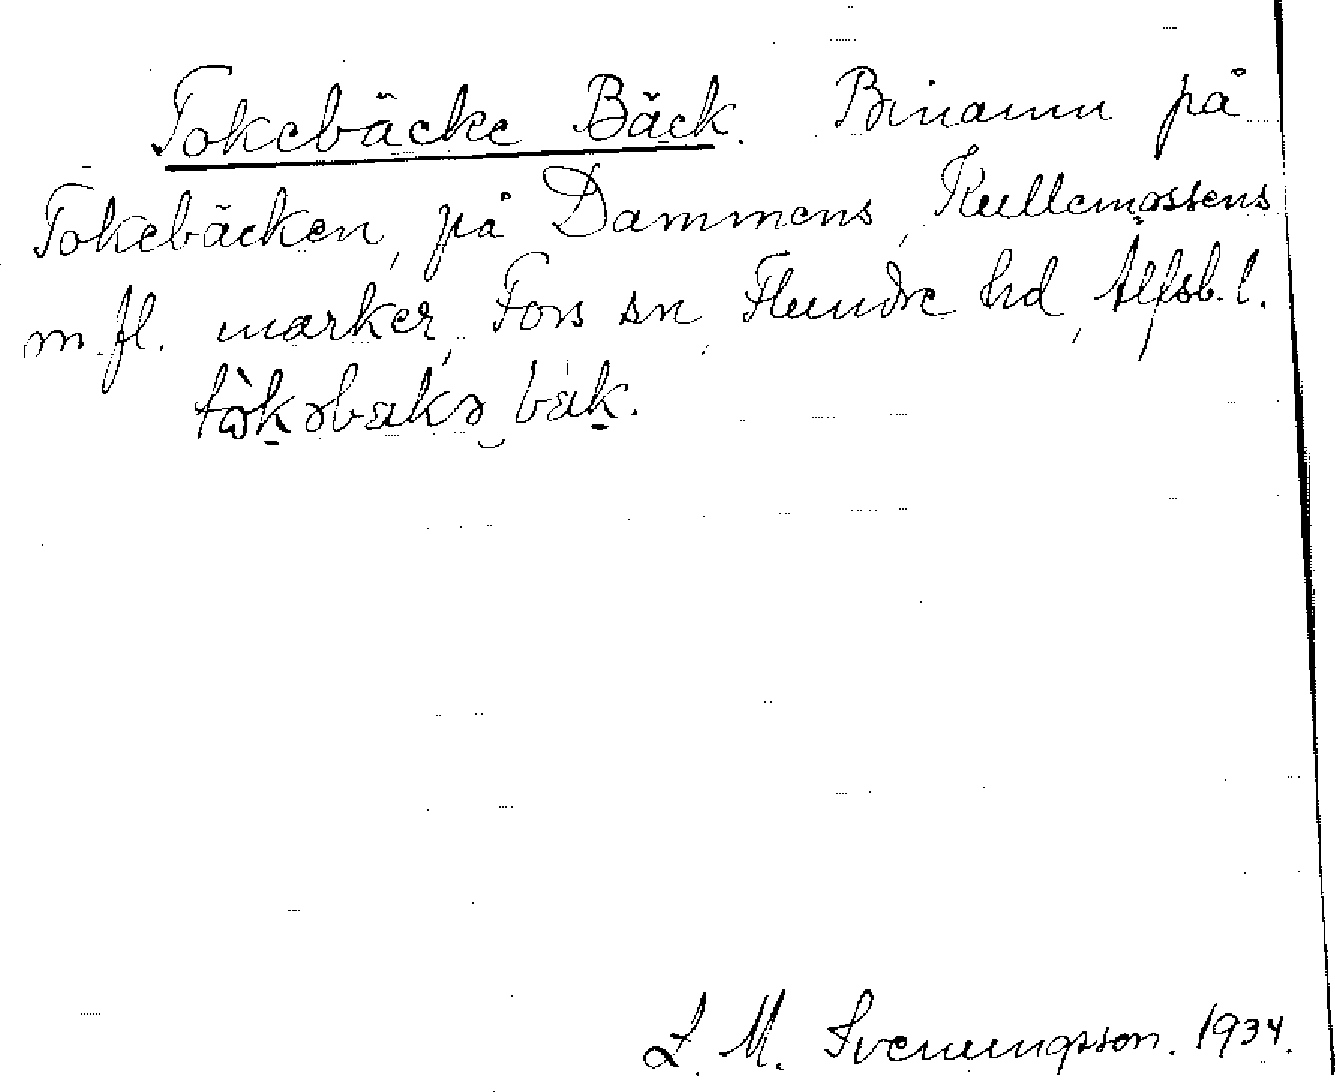 Tokebäcke Bäck. Binamn på
Tokebäcken, på Dammens, Kullemossens
m. fl. marker, Fors sn, Flundre hd, Älfsb. l.
bäk.
L. M. Svenungsson. 1934.